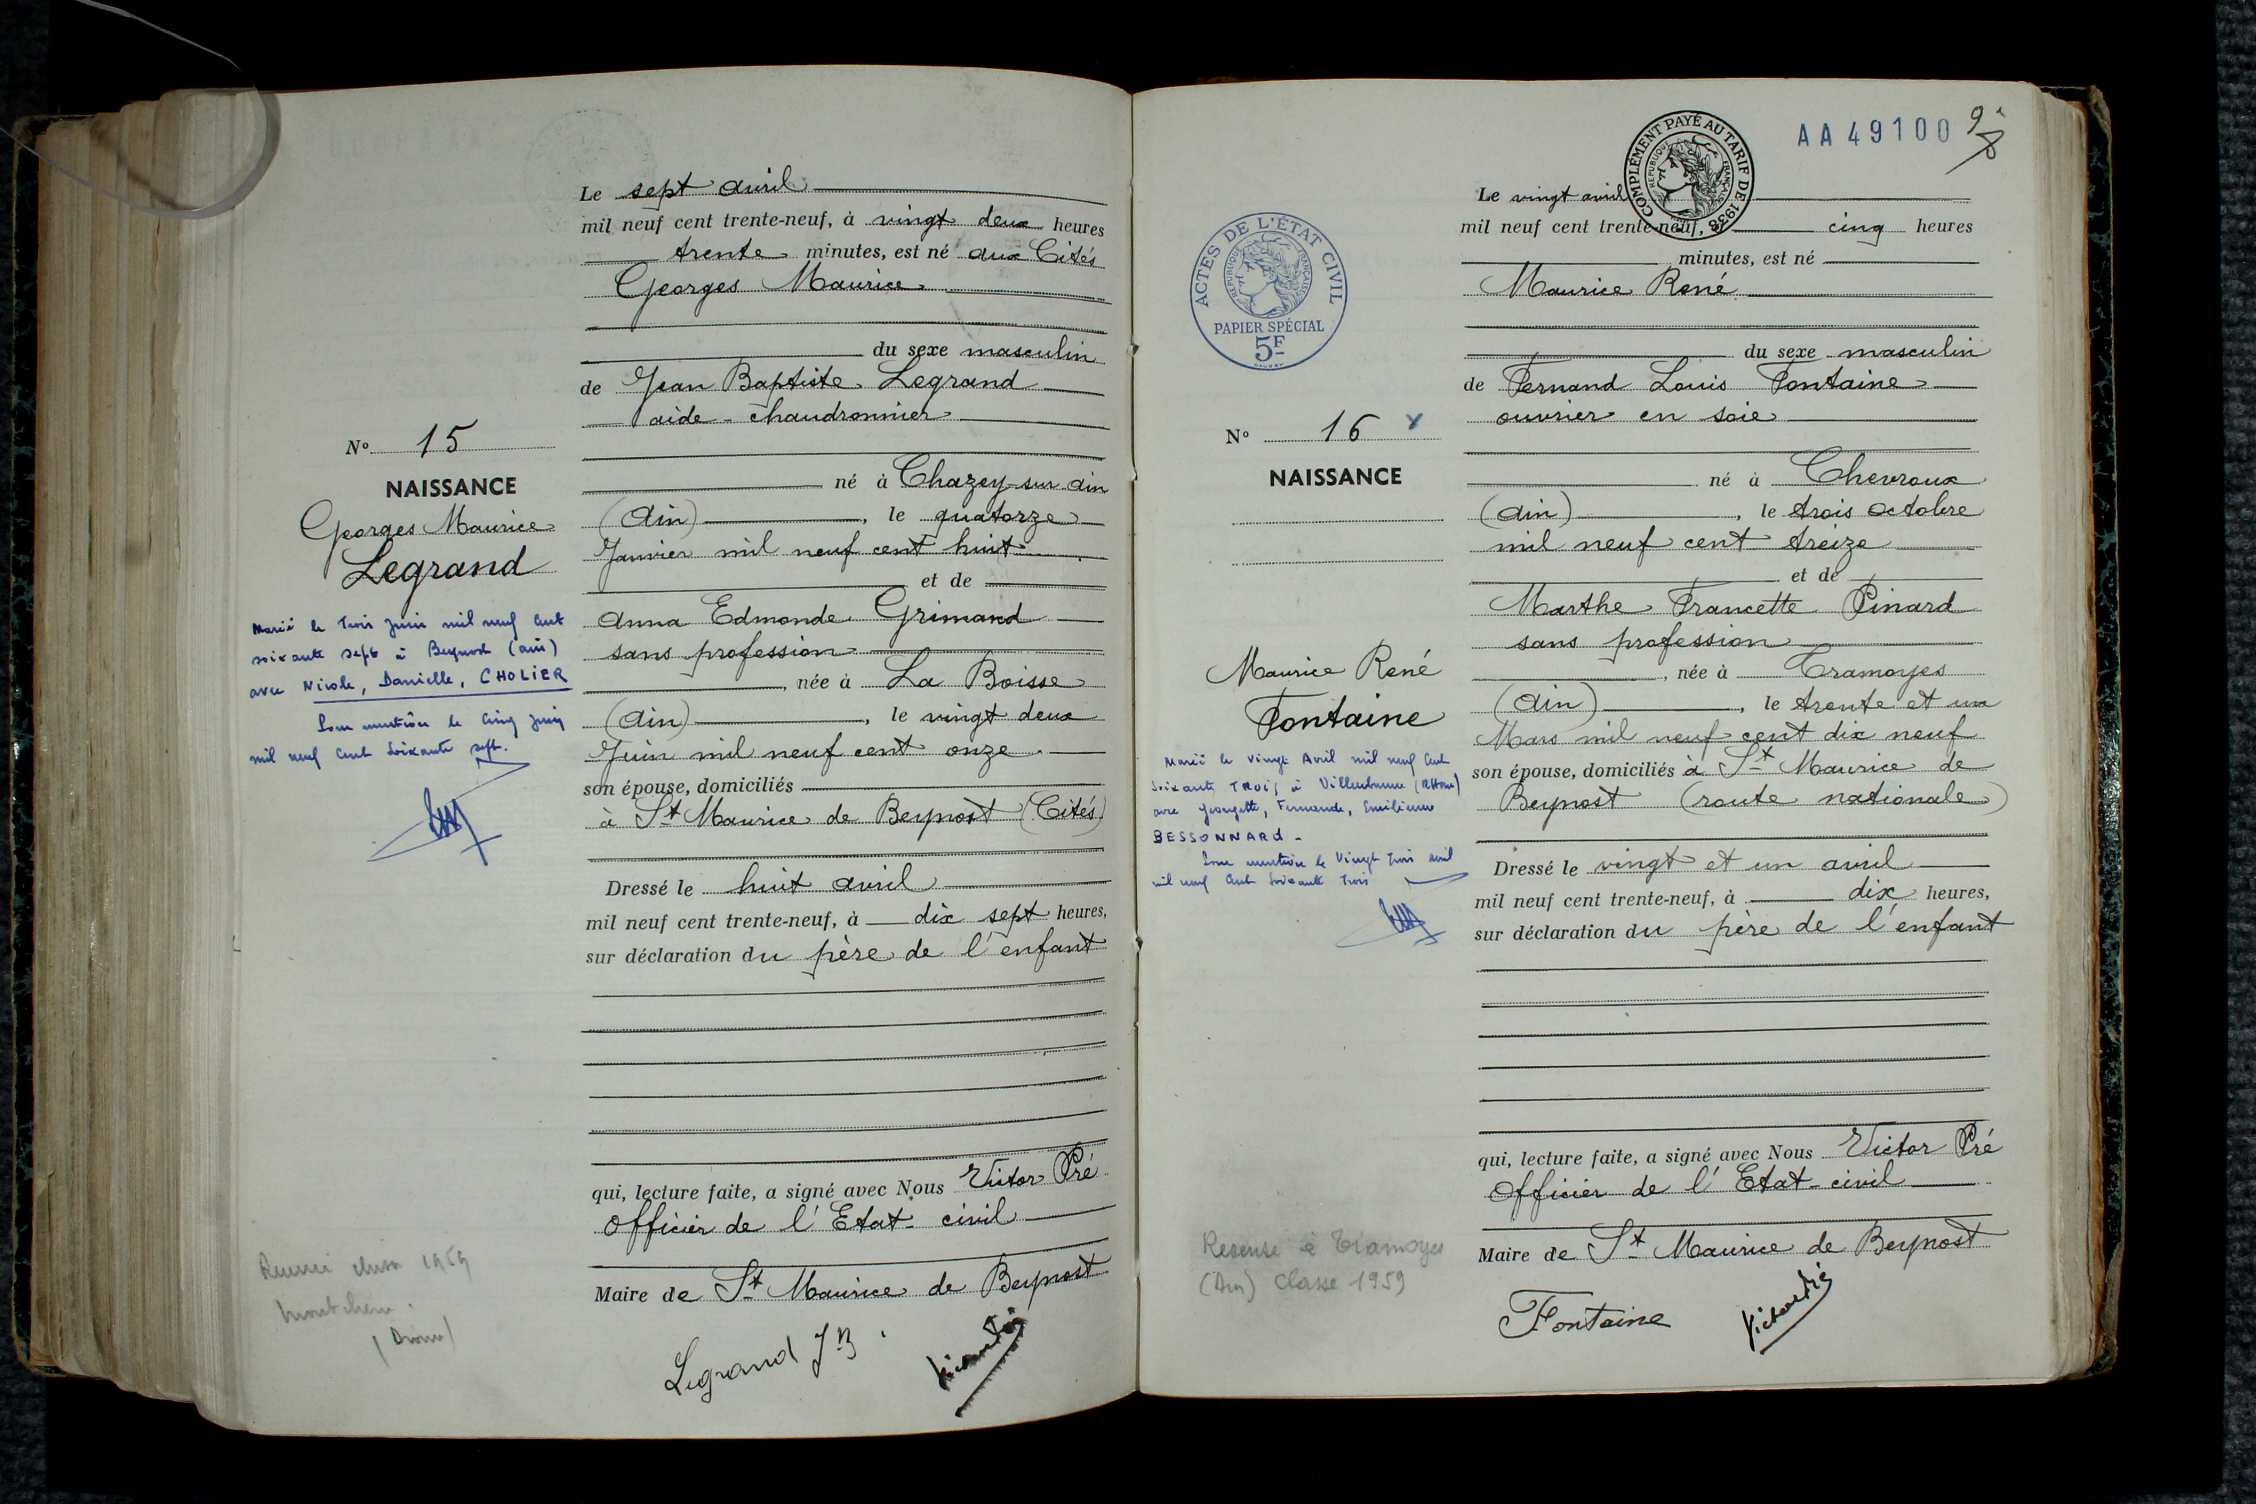 Le sept avril
mil neuf cent trente-neuf, à vingt deux heures
trente minutes, est né aux Cités
Georges Maurice
du sexe masculin
de Jean Baptiste Legrand
aide-chaudronnier
né à Chazey-sur-ain
(Ain), le quatorze
Janvier mil neuf cent huit
et de
Anna Edmonde Grimand
sans profession
, née à La Boisse
(Ain), le vingt deux
Juin mil neuf cent onze
son épouse, domiciliés
à St Maurice de Beynost (Cités)
Dressé le huit avril
mil neuf cent trente-neuf, à dix sept heures,
sur déclaration du père de l'enfant
qui, lecture faite, a signé avec Nous Victor Pré
Officier de l'Etat-civil
Maire de St Maurice de Beynost
Legrand JB
No 15
NAISSANCE
Georges Maurice
Legrand
Marié le trois juin mil neuf cent
soixante sept à Beynost (ain)
avec Nicole, Danielle, CHOLIER
mention le cinq juin
mil neuf cent soixante sept.
1959
AA 49100
COMPLÉMENT PAYÉ AU TARIF DE 1938
RÉPUBLIQUE FRANÇAISE
Le vingt avril
mil neuf cent trente-neuf, à cinq heures
minutes, est né
Maurice René
du sexe masculin
de Fernand Louis Fontaine
ouvrier en soie
né à Chevroux
(Ain), le trois octobre
mil neuf cent treize
et de
Marthe Francette Pinard
sans profession
, née à Tramoyes
(Ain), le trente et un
Mars mil neuf cent dix neuf
son épouse, domiciliés à St Maurice de
Beynost (route nationale)
Dressé le vingt et un avril
mil neuf cent trente-neuf, à dix heures,
sur déclaration du père de l'enfant
qui, lecture faite, a signé avec Nous Victor Pré
Officier de l'Etat-civil
Maire de St Maurice de Beynost
Fontaine
ACTES DE L'ÉTAT CIVIL
RÉPUBLIQUE FRANÇAISE
PAPIER SPÉCIAL
5F
No 16
NAISSANCE
Maurice René
Fontaine
Marié le vingt Avril mil neuf cent
soixante TROIS à Villeurbanne (Rhône)
avec Georgette, Fernande, Emilienne
BESSONNARD-
mention le vingt trois avril
mil neuf cent soixante trois
Recensé à Tramoyes
(Ain) Classe 1959